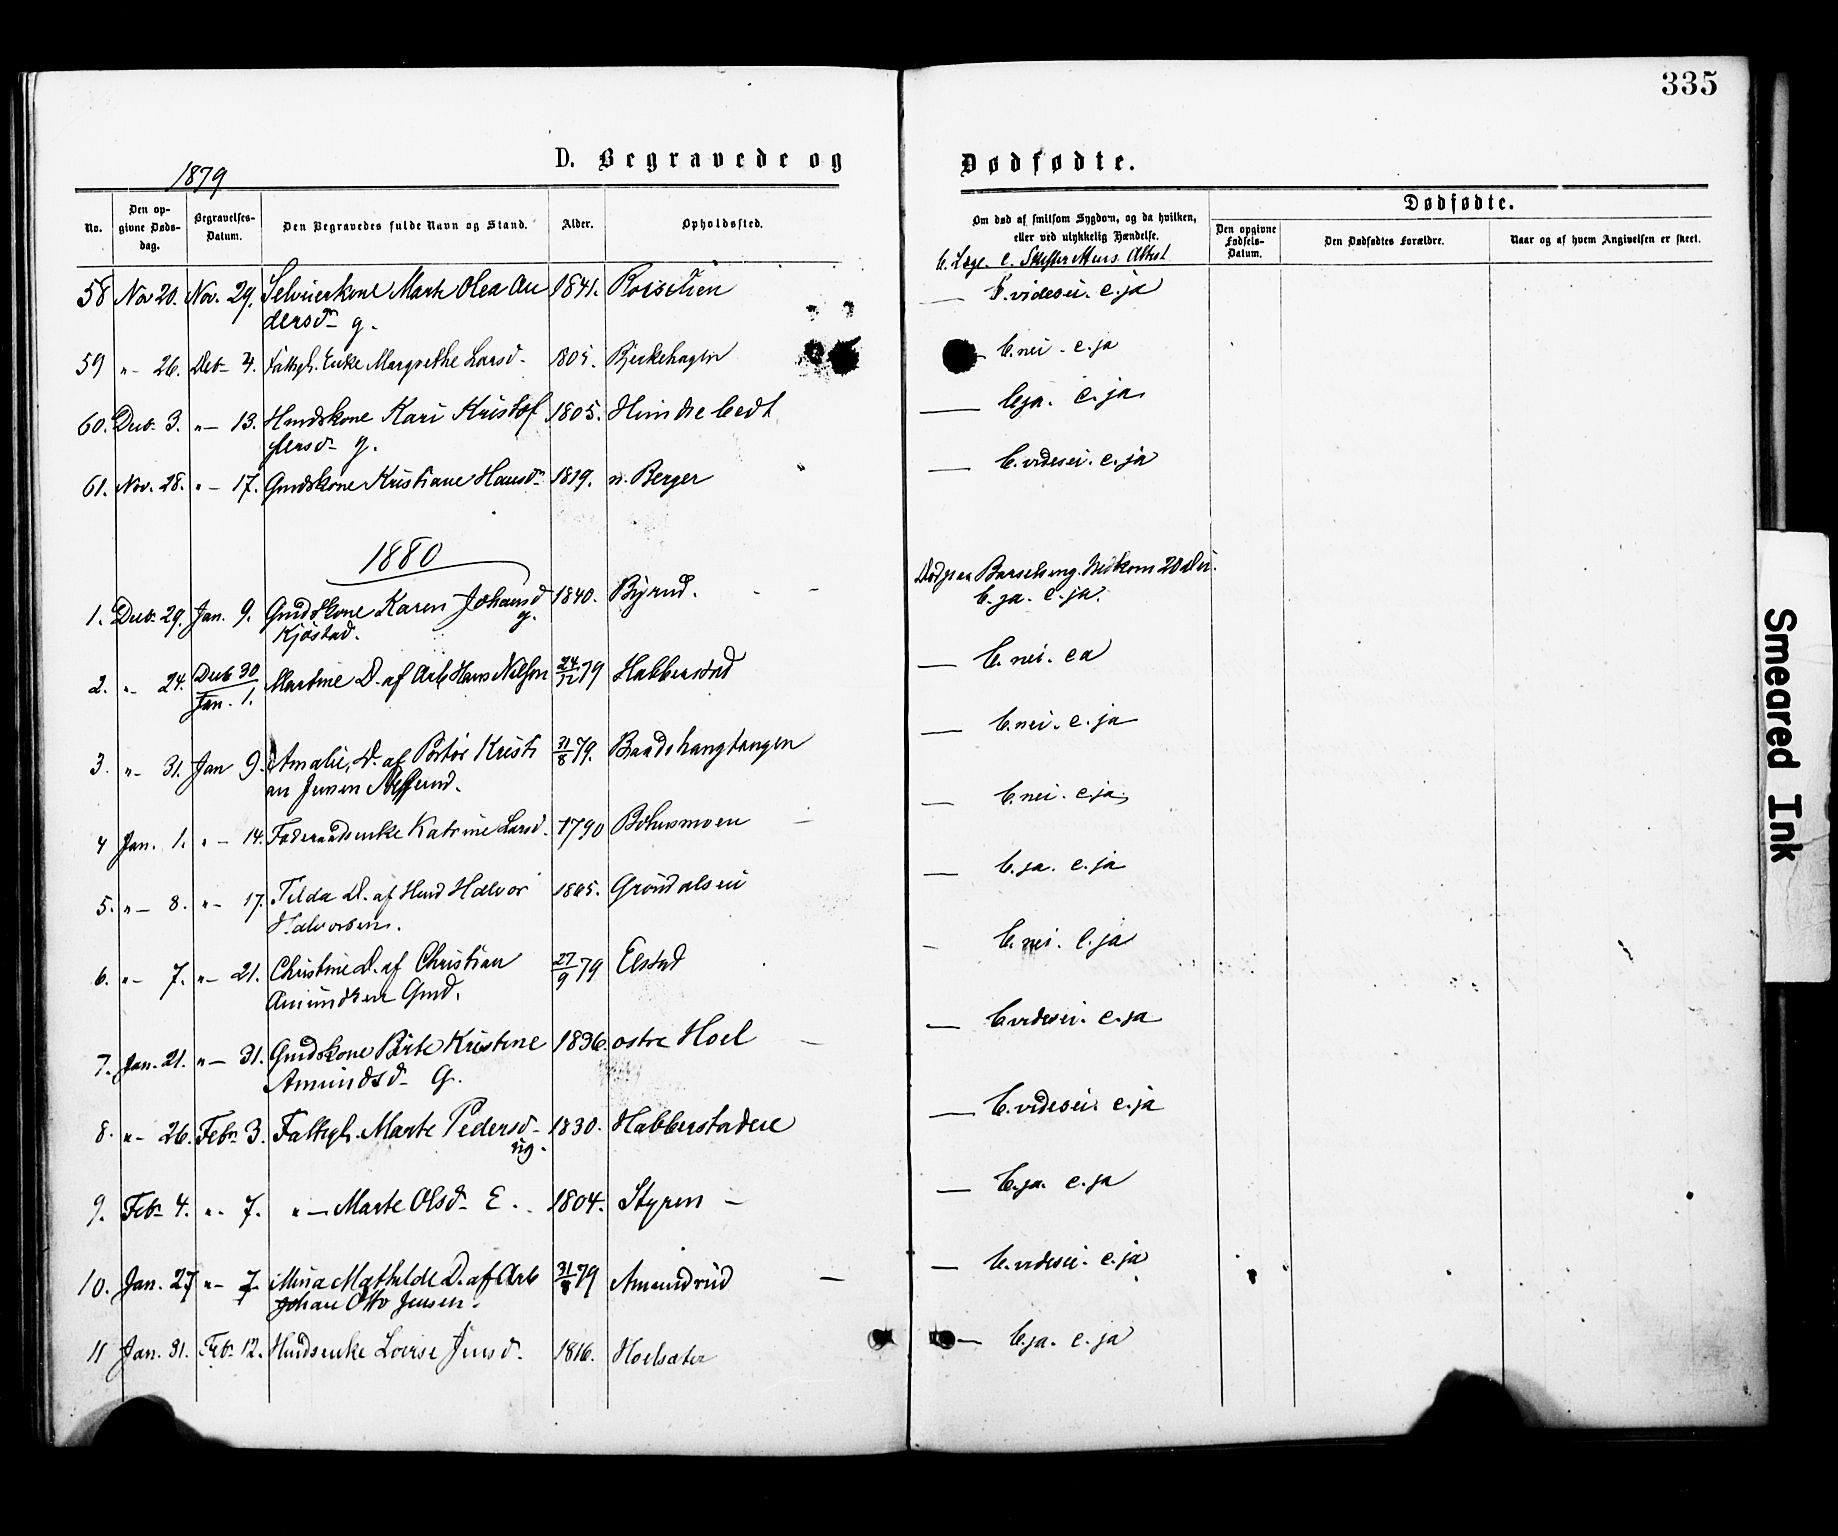 335
D. Begravede og Dødfødte.
1879
No.
Den op-
givne Døds-
dag.
Begravelses-
Datum.
Den Begravedes fulde Navn og Stand.
Alder.
Opholdssted.
Om død af smitsom Sygdom, og da hvilken,
eller ved ulykkelig Hændelse.
b. Læge. c. Attest
Dødfødte.
Den opgivne
Fødsels-
Datum.
Den Dødfødtes Forældre.
Naar og af hvem Angivelsen er skeet.
58 Nov 20. Nov. 29. Selveierkone Marte Olea An 1841. — b. videsei. c. ja
dersd. g.
59 " – 26. Decb 4. Fattigl. Enke Margrethe Larsd. 1805. Bjerkehagen — b. nei. c. ja
60. Decb 3. " – 13. Hmdskone Kari Kristof 1805. — b. ja. c. ja.
fersd. g.
61. Nov. 28. " – 17. Gmdskone Kristiane Hansd. 1819. n. Berger — b. videsei. c. ja
1880
Død paa Barselseng. Nedkom 20 Dec.
1. Decb 29. Jan. 9. Gmdskone Karen Johansd 1840. Byrud. b. ja. c. ja.
g.
Kjøstad.
2. " – 24. Decb 30 / Jan. 1. Martine D. af Arb Hans Nilsen 24/12 79 Habberstad — b. nei. c a
3. " – 31. Jan 9. Amalie, D. af Kristi 31/8 79. Baadshaugtangen — b. nei. c. ja
an Jensen
4 Jan. 1. " – 14. Føderaadsenke Katrine Larsd. 1790 Bohusmoen — b. nei. c. ja.
5. " – 8. " – 17. Tilda D. af Hmd Halvor Grøndalsen — b. ja. c. ja
Halvorsen.
6. " – 7. " – 21. Christine D. af Christian 27/9 79 Elstad – b. nei. c. ja
Amundsen Gmd.
7. Jan. 21. " – 31. Gmdskone Birte Kristine 1836. østre Hoel — b. videsei. c. ja
Amundsd. G.
8. " – 26. Febr 3. Fattigl. Marte Pedersd. 1830. Habberstadeie — b. videsei. c. ja
ug.
9. Febr 4. " – 7. " — Marte Olsd. E. 1804. Styren – — b. ja. c. ja
10. Jan. 27 " – 7. Mina Mathilde D. af Arb 31/ 79 Amundrud — b. videsei. c. ja
Johan Otto Jensen.
11 Jan. 31. Feb. 12. Hmdsenke Lovise Jensd. 1816. Hoelsæter — b. ja. c. ja
Smeared Ink